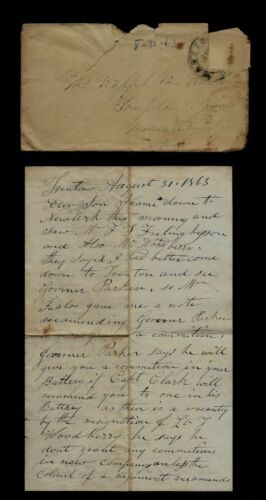 8-31-63
Trenton August 31. 1863
Dear Son I came down to
Newark this morning and
saw Mr F. T. Frelinghyson
and Also Mr Woodberry.
they sayed I had better come
down to Trenton and see
Goviner Parker, so Mr
gave me a note
recomending Goviner Parker
a commition,
Goviner Parker says he will
give you a commition in your
Battery if Capt Clark will
recomend you to one in his
Battery as ther is a vacancy
by the resignation of Lt
Woodberry, he says he
dont grant any commitions
in new companies unless the
Colonel of a regiment recomends